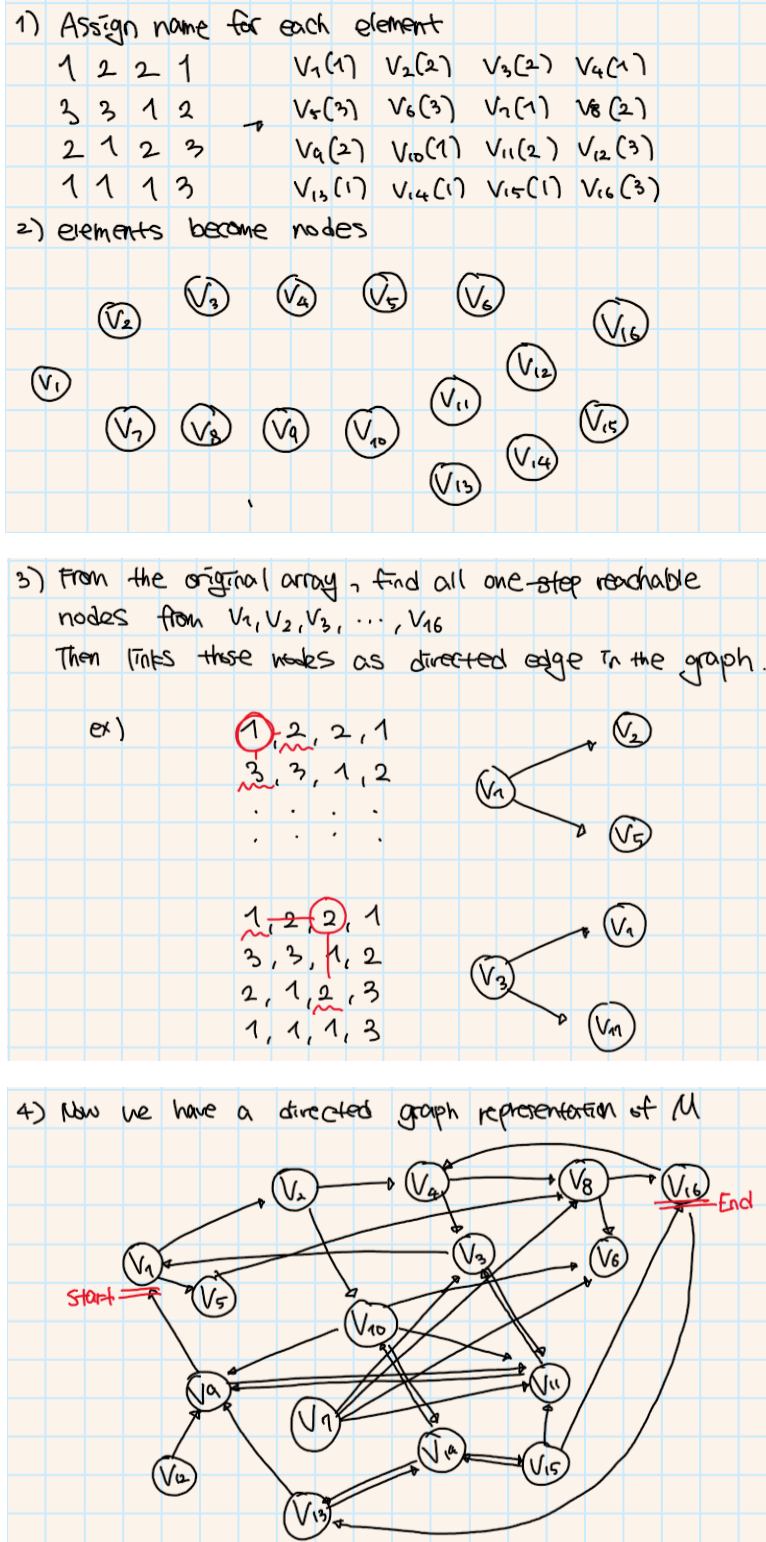 1) Assign name for each element
1 2 2 1 V1(1) V2(2) V3(2) V4(1)
3 3 1 2 → V5(3) V6(3) V7(1) V8(2)
2 1 2 3 V9(2) V10(1) V11(2) V12(3)
1 1 1 3 V13(1) V14(1) V15(1) V16(3)
2) elements become nodes
V3 V4 V5 V6
V2 V16
V12
V1
V11
V7 V8 V9 V10 V15
V14
V13
3) From the original array, find all one-step reachable
nodes from V1, V2, V3, ..., V16
Then links those nodes as directed edge in the graph.
ex) 1, 2, 2, 1 V2
3, 3, 1, 2 V1
. . . .
. . . . V5
1, 2, 2, 1 V1
3, 3, 1, 2
2, 1, 2, 3 V3
1, 1, 1, 3 V11
4) Now we have a directed graph representation of M
V2 V4 V8 V16
End
V1 V3 V6
Start V5
V10
V9 V11
V7
V14
V12 V15
V13